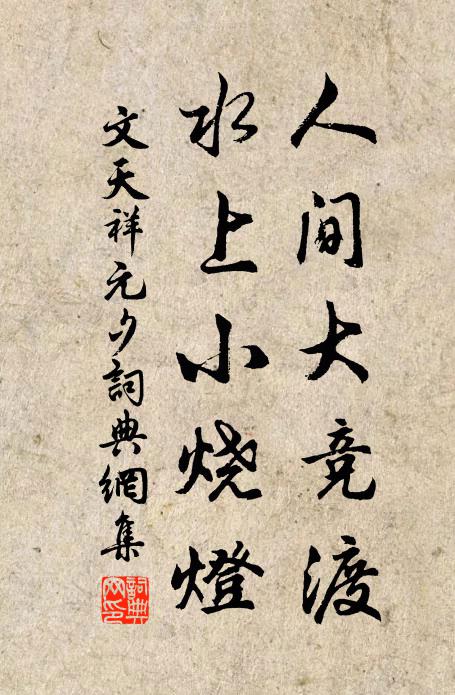 人间大竞渡
水上小烧燈
文天祥元夕詞典網集
詞典網印